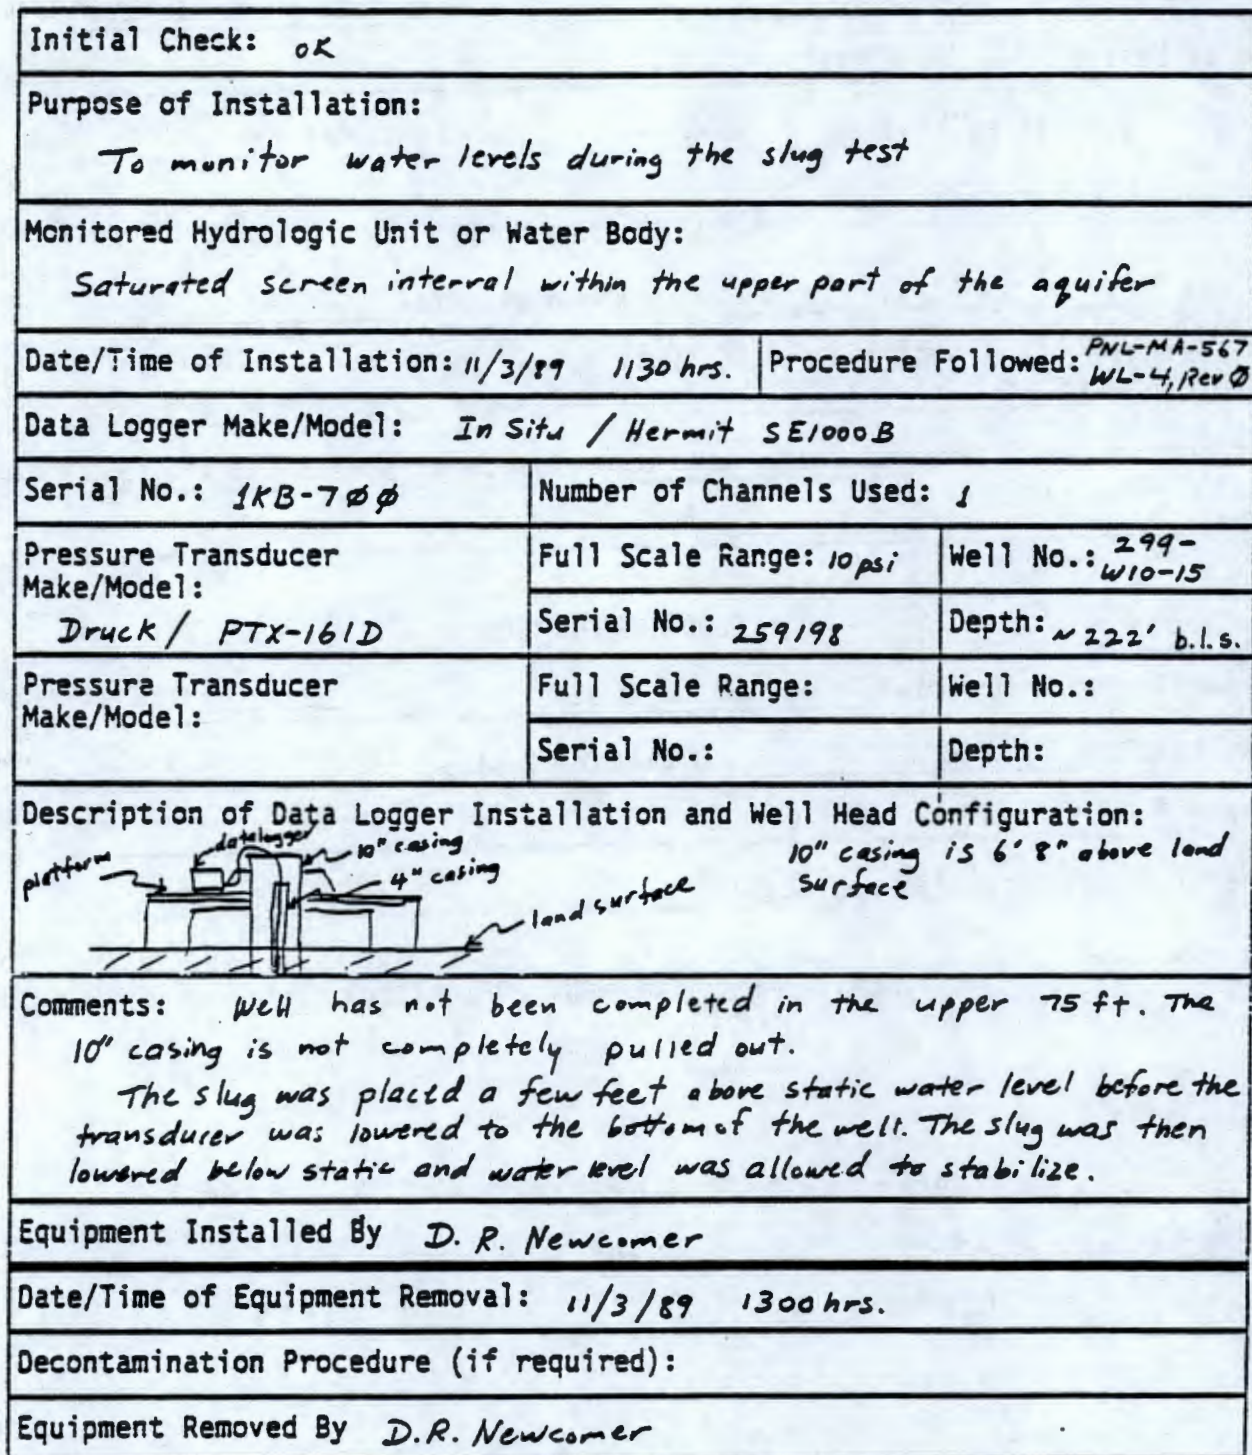 Initial Check: OK
Purpose of Installation:
To monitor water levels during the slug test
Monitored Hydrologic Unit or Water Body:
Saturated screen interval within the upper part of the aquifer
Date/Time of Installation: 11/3/89 1130 hrs. Procedure Followed: PNL-MA-567
WL-4, Rev Ø
Data Logger Make/Model: In Situ / Hermit SE1000B
Serial No.: 1KB-7ØØ Number of Channels Used: 1
Pressure Transducer
Make/Model:
Druck / PTX-161D
Full Scale Range: 10 psi Well No.: 299-
W10-15
Serial No.: 259198 Depth: ~222' b.l.s.
Pressure Transducer
Make/Model:
Full Scale Range: Well No.:
Serial No.: Depth:
Description of Data Logger Installation and Well Head Configuration:
datalogger
platform
10" casing
4" casing
land surface
10" casing is 6' 8" above land
surface
Comments: Well has not been completed in the upper 75 ft. The
10" casing is not completely pulled out.
The slug was placed a few feet above static water level before the
transducer was lowered to the bottom of the well. The slug was then
lowered below static and water level was allowed to stabilize.
Equipment Installed By D. R. Newcomer
Date/Time of Equipment Removal: 11/3/89 1300 hrs.
Decontamination Procedure (if required):
Equipment Removed By D.R. Newcomer